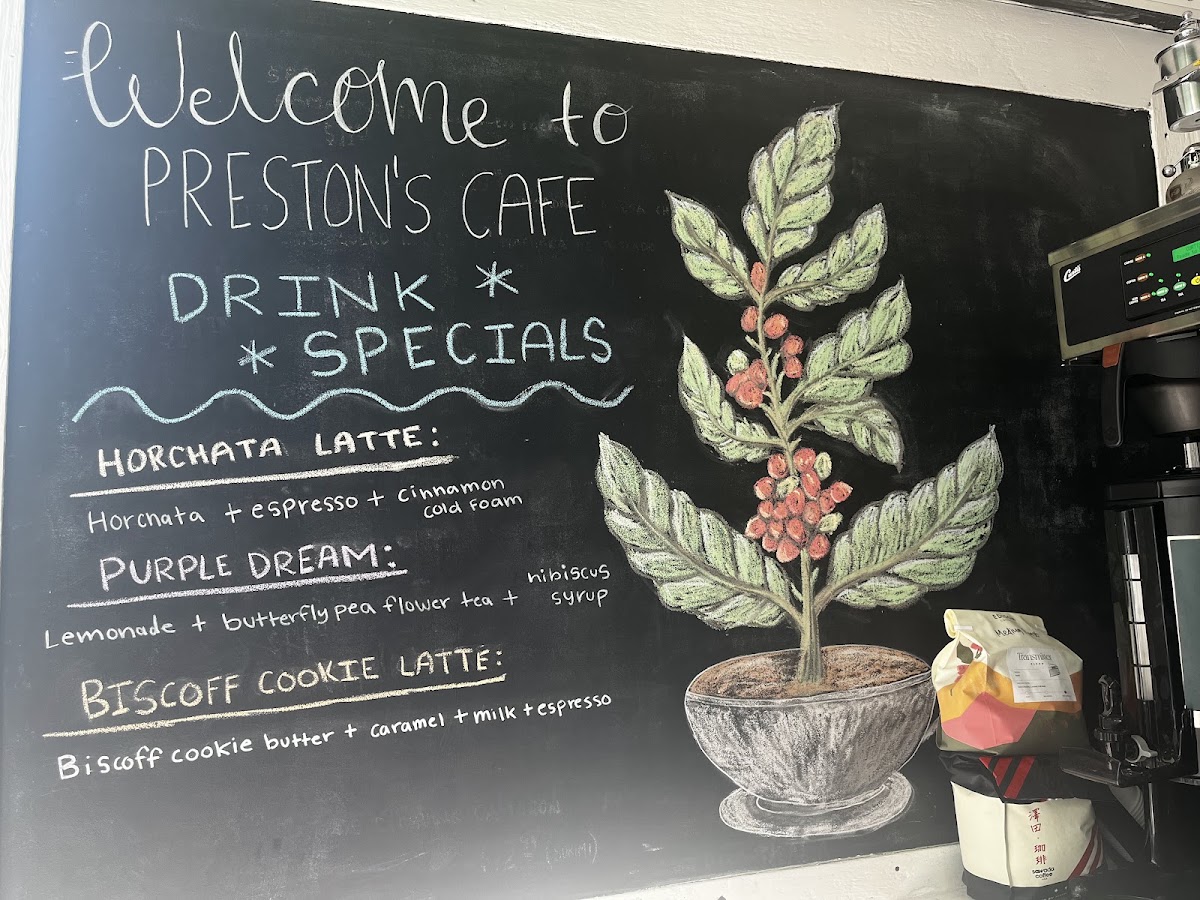 Welcome to
PRESTON'S CAFE
DRINK *
* SPECIALS
HORCHATA LATTE:
Horchata + espresso + cinnamon
cold foam
PURPLE DREAM:
Lemonade + butterfly pea flower tea + hibiscus
syrup
BISCOFF COOKIE LATTE:
Biscoff cookie butter + caramel + milk + espresso
Curtis
Medium
澤田
珈琲
sawada
coffee